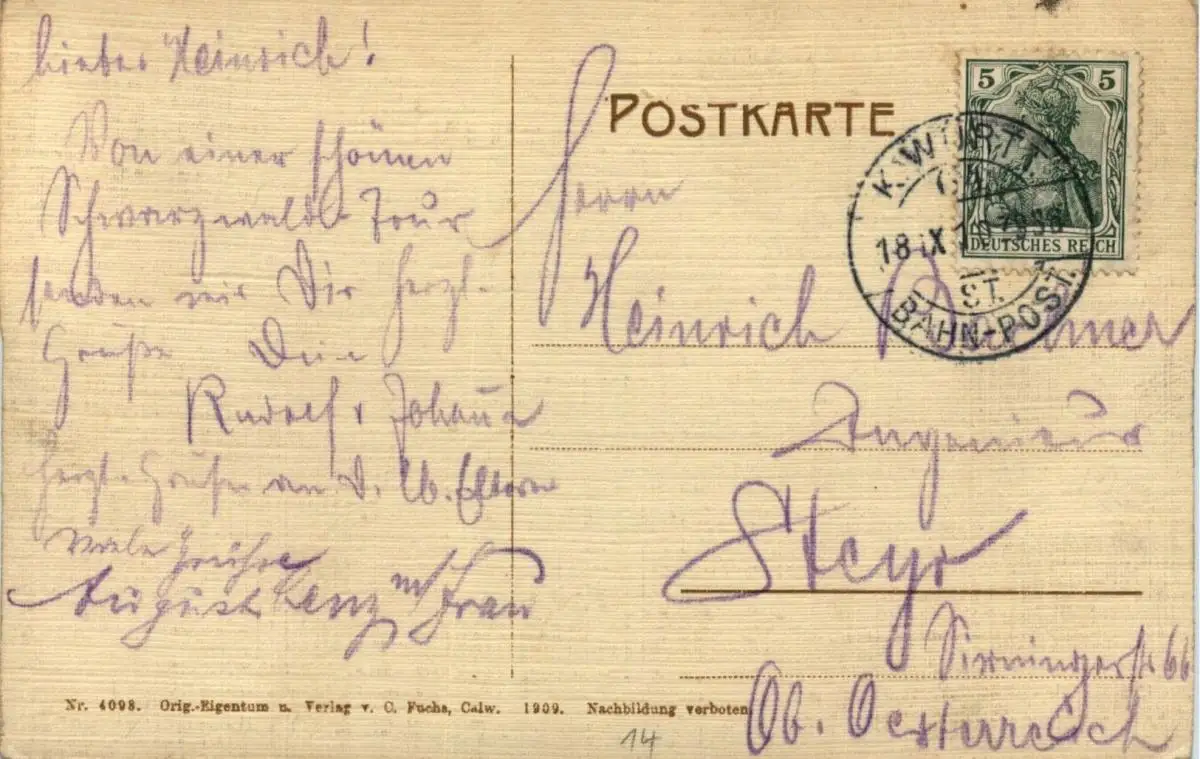 Lieber Heinrich!
Von einer schönen
Schwarzwald-Tour
senden wir Dir herzl.
Grüße Dein
Rudolf & Johanna
herzl. Grüße an d. lb. Eltern
Viele Grüße
August Lenz mit Frau
POSTKARTE
Herrn
Heinrich
Ingenieur
Steyr
Sierningerstr 66
Ob. Oesterreich
5 5
DEUTSCHES REICH
K. WÜRTT.
18 IX
ST.
BAHN-POST.
Nr. 4098. Orig.-Eigentum u. Verlag v. C. Fuchs, Calw. 1909. Nachbildung verboten
14